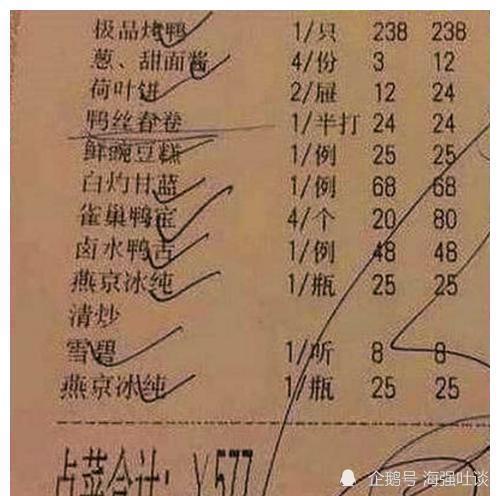 极品烤鸭 1/只 238 238
葱、甜面酱 4/份 3 12
荷叶饼 2/屉 12 24
鸭丝春卷 1/半打 24 24
鲜豌豆糕 1/例 25 25
白灼甘蓝 1/例 68 68
雀巢鸭宝 4/个 20 80
卤水鸭舌 1/例 48 48
燕京冰纯 1/瓶 25 25
清炒
雪碧 1/听 8 8
燕京冰纯 1/瓶 25 25
点菜合计：￥577
企鹅号 海强吐谈